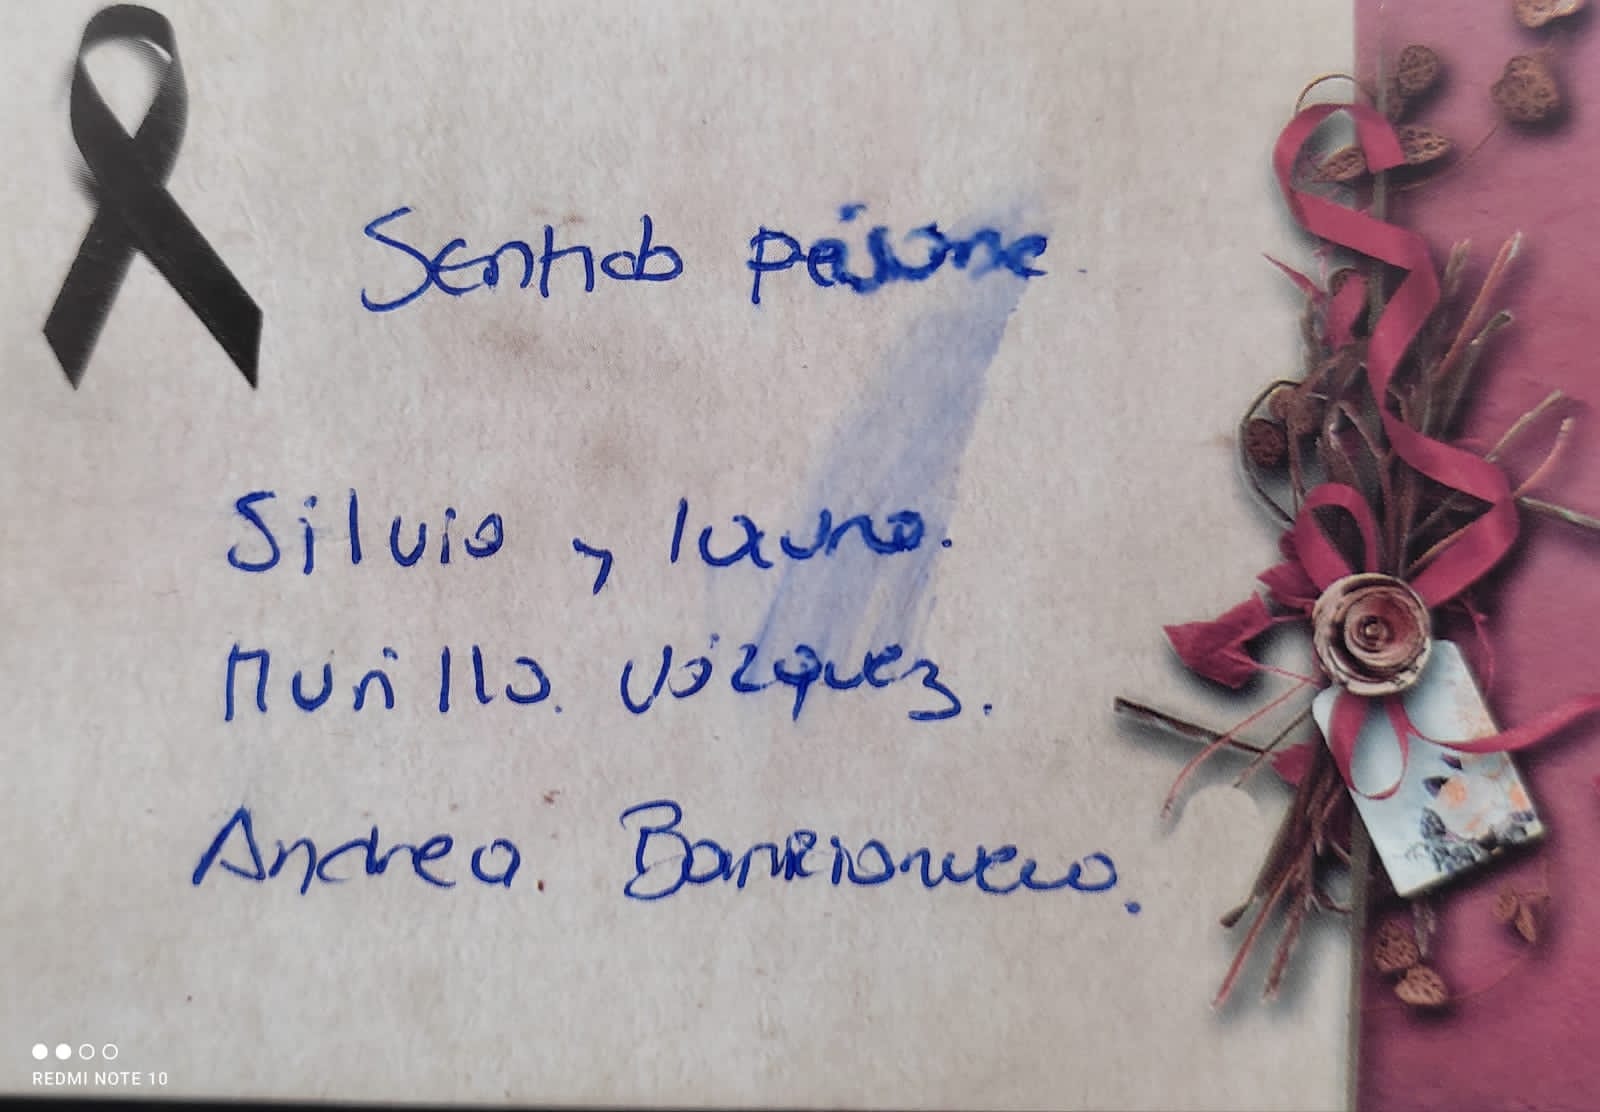 Sentido pésame.
Silvia y laura.
Murillo. Vázquez.
Andrea. Barrionuevo.
REDMI NOTE 10